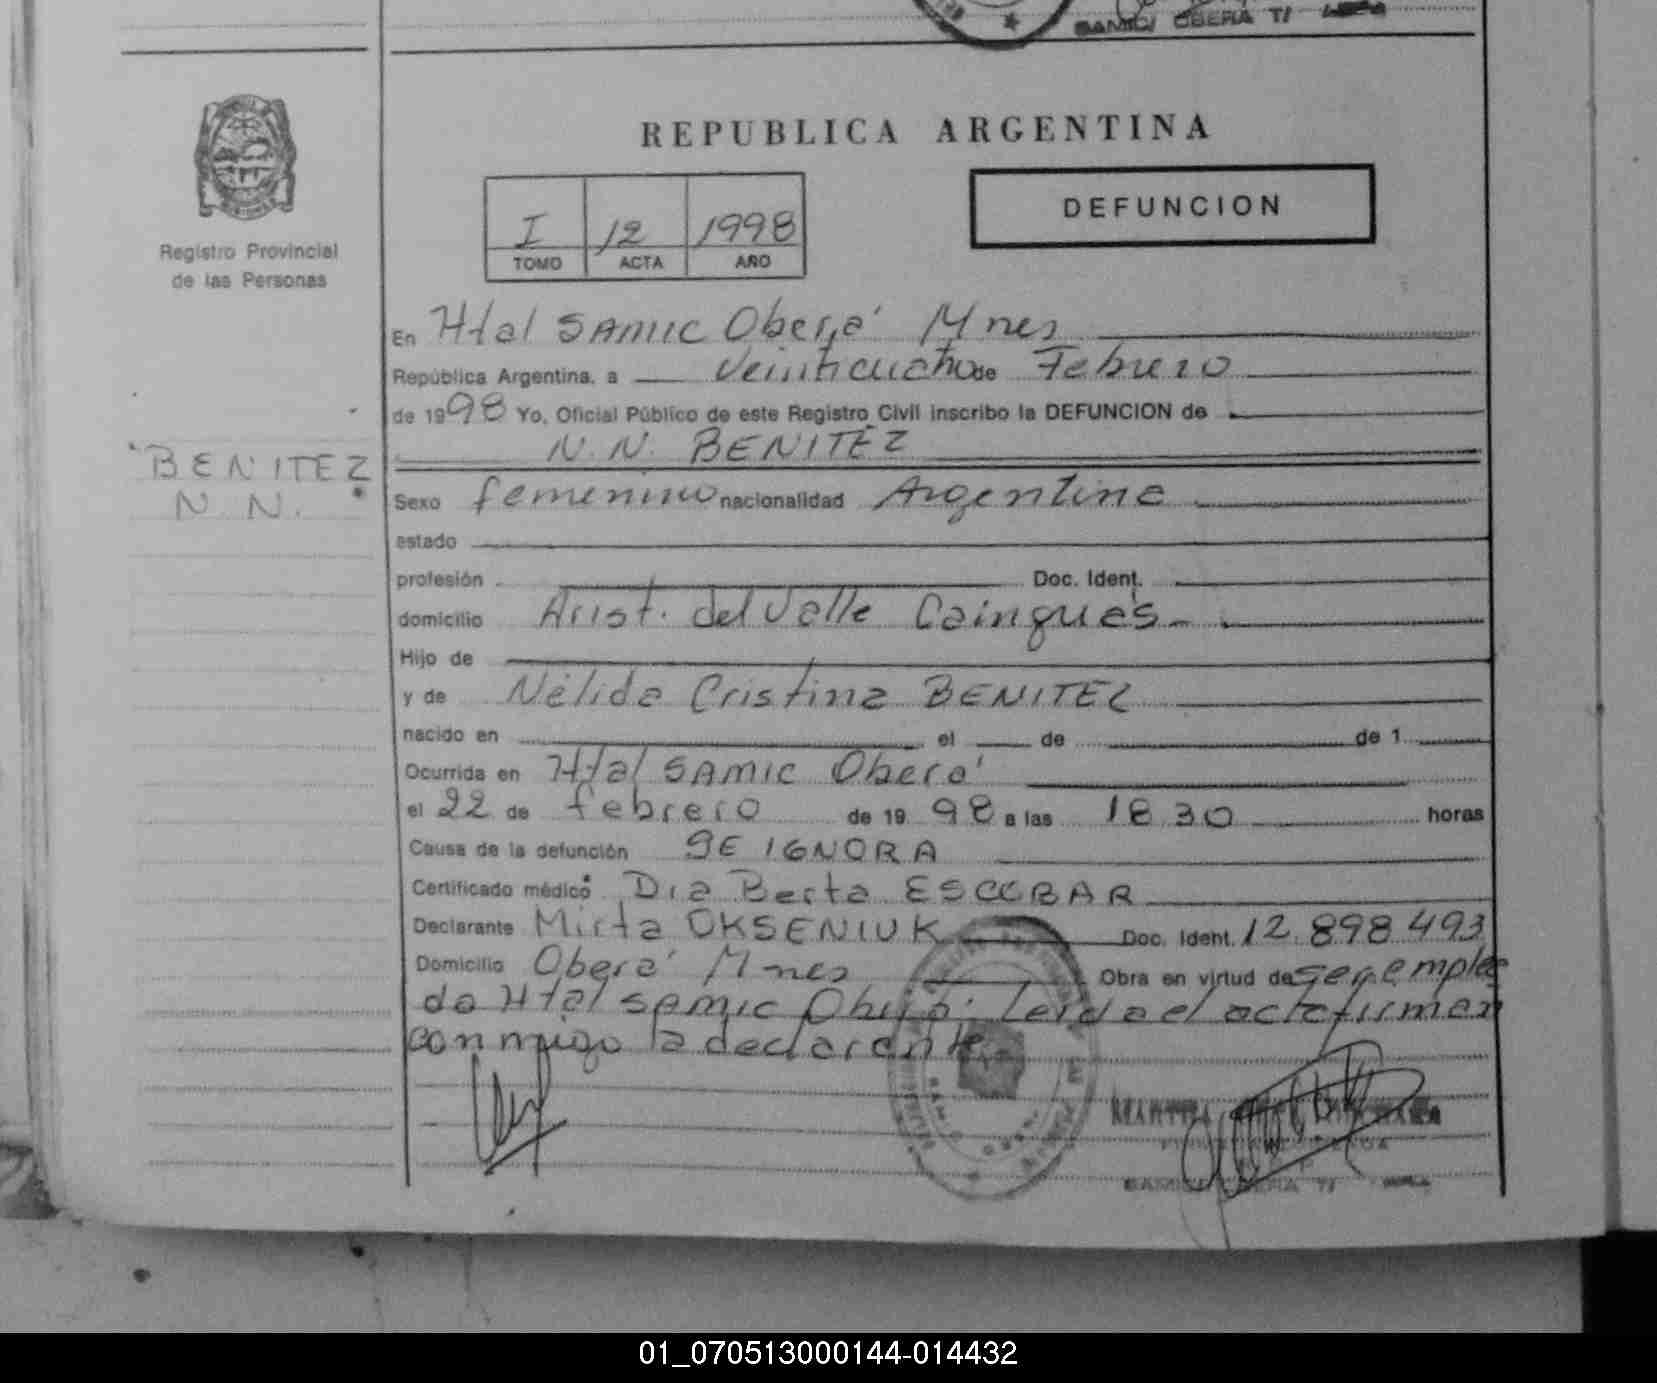 SAMIC/ OBERA
REPUBLICA ARGENTINA
DEFUNCION
I 12 1998
TOMO ACTA AÑO
Registro Provincial
de las Personas
En Htal SAMIC Oberá Mnes
República Argentina, a Veinticuatro de Febrero
de 1998 Yo, Oficial Público de este Registro Civil inscribo la DEFUNCION de
N.N. BENITEZ
BENITEZ
N. N.
Sexo femenino nacionalidad Argentina
estado
profesión Doc. Ident.
domicilio Arist. del Valle Cainguás
Hijo de
y de Nélida Cristina BENITEZ
nacido en el de de 1
Ocurrida en Htal SAMIC Oberá
el 22 de febrero de 1998 a las 18 30 horas
Causa de la defunción SE IGNORA
Certificado médico Dra Berta ESCOBAR
Declarante Mirta OKSENIUK Doc. Ident. 12.898.493
Domicilio Oberá Mnes Obra en virtud de ser emplea
da Htal SAMIC Oberá. Leida el acta firman
conmigo la declarante
01_070513000144-014432